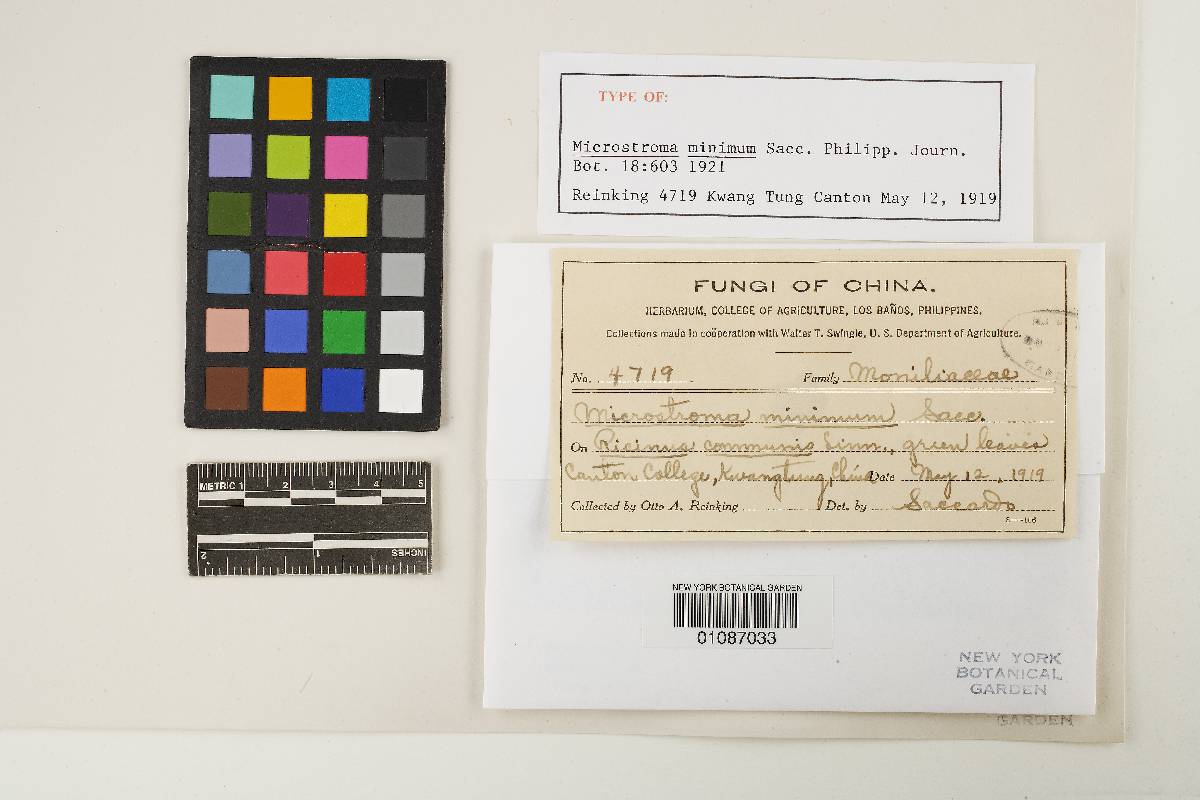 TYPE OF:
Microstroma minimum Sacc. Philipp. Journ.
Bot. 18:603 1921
Reinking 4719 Kwang Tung Canton May 12, 1919
FUNGI OF CHINA.
HERBARIUM, COLLEGE OF AGRICULTURE, LOS BAÑOS, PHILIPPINES.
Collections made in coöperation with Walter T. Swingle, U. S. Department of Agriculture.
No. 4719 Family Moniliaceae
Microstroma minimum Sacc.
On Ricinus communis Linn., green leaves
Canton College, Kwangtung, China Date May 12, 1919
Collected by Otto A. Reinking Det. by Saccardo
METRIC 1 2 3 4 5
2 1 INCHES
NEW YORK BOTANICAL GARDEN
01087033
NEW YORK
BOTANICAL
GARDEN
GARDEN